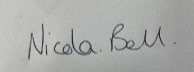 Nicola. Bell.